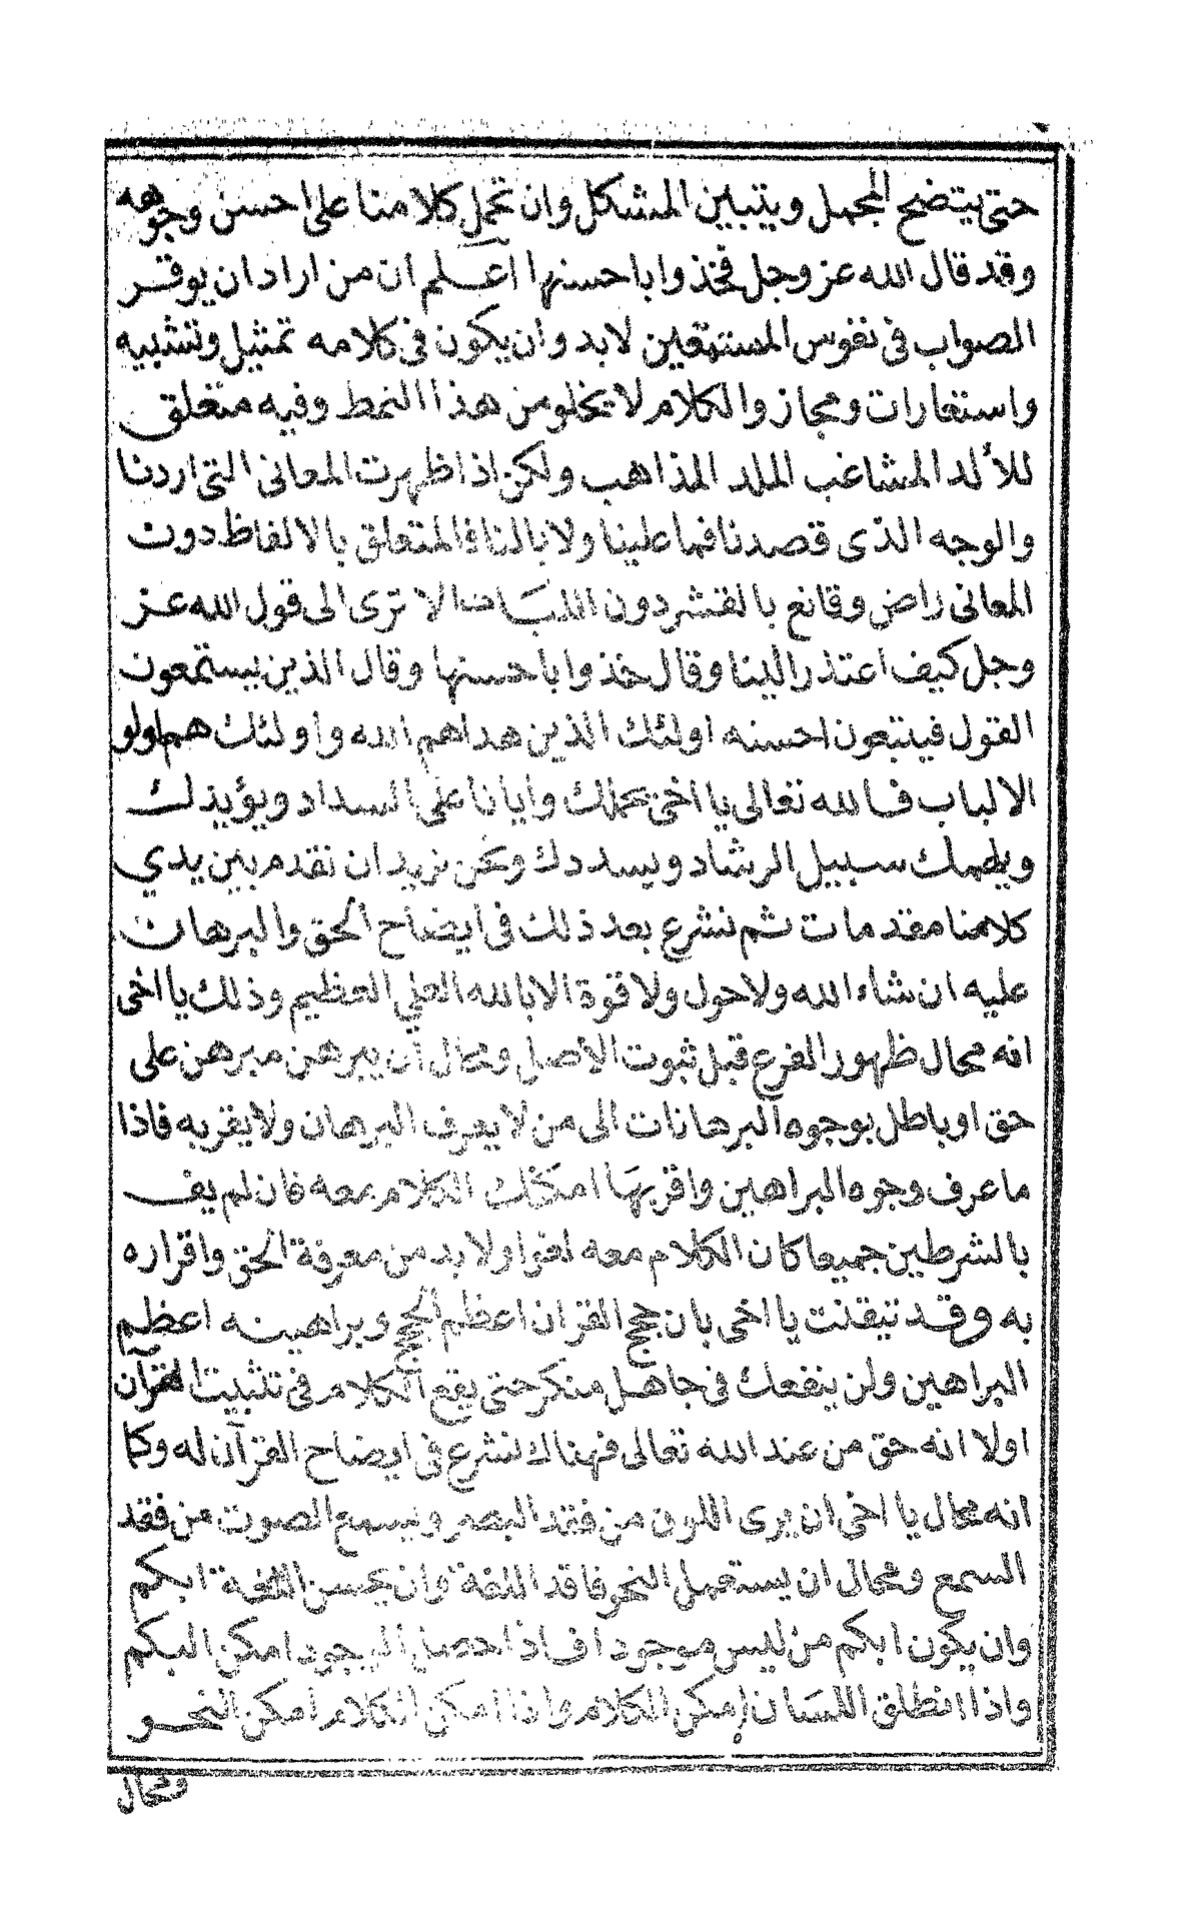 حتى يتضح المجمل ويتبين المشكل وان تحمل كلامنا على احسن وجوهه
وقد قال الله عز وجل فخذوا باحسنها اعلم ان من اراد ان يوقر
الصواب فى نفوس المستمعين لابد وان يكون فى كلامه تمثيل وتشبيه
واستعارات ومجاز والكلام لا يخلو من هذا النمط وفيه متعلق
للألد المشاغب الملد المذاهب ولكن اذا ظهرت المعانى التى اردنا
والوجه الذى قصدنا فما علينا ولا بالنا فالمتعلق بالالفاظ دون
المعانى راض وقانع بالقشر دون اللباب الا ترى الى قول الله عز
وجل كيف اعتذر الينا وقال خذوا باحسنها وقال الذين يستمعون
القول فيتبعون احسنه اولئك الذين هداهم الله واولئك هم اولو
الالباب فالله تعالى يا اخى يحملك وايانا على السداد ويؤيدك
ويلهمك سبيل الرشاد ويسددك ونحن نريد ان نقدم بين يدي
كلامنا مقدمات ثم نشرع بعد ذلك فى ايضاح الحق والبرهان
عليه ان شاء الله ولا حول ولا قوة الا بالله العلي العظيم وذلك يا اخى
انه محال ظهور الفرع قبل ثبوت الاصل ومحال أن يبرهن مبرهن على
حق او باطل بوجوه البرهانات الى من لا يعرف البرهان ولا يقر به فاذا
ما عرف وجوه البراهين واقر بها امكنك الكلام معه فان لم يف
بالشرطين جميعا كان الكلام معه لغوا ولا بد من معرفة الحق واقراره
به وقد تيقنت يا اخى بان حجج القران اعظم الحجج وبراهينه اعظم
البراهين ولن ينفعك فى جاهل منكر حتى يقع الكلام فى تثبيت القرآن
اولا انه حق من عند الله تعالى فهناك نشرع فى ايضاح القرآن له وكما
انه محال يا اخى ان يرى اللون من فقد البصر ويسمع الصوت من فقد
السمع ومحال ان يستعمل النحو فاقد اللغة وان يحسن اللغة ابكم
وان يكون ابكم من ليس موجودا فاذا حصل الوجود امكن البكم
واذا انطلق اللسان امكن الكلام واذا امكن الكلام امكن النحو
ومحال